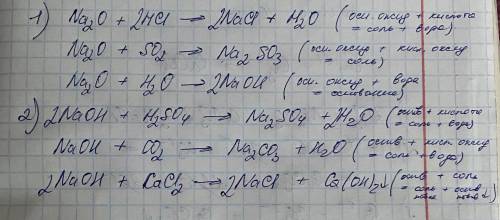 1) Na₂O + 2HCl → 2NaCl + H₂O (осн. оксид + кислота = соль + вода)
Na₂O + SO₂ → Na₂SO₃ (осн. оксид + кисл. оксид = соль)
Na₂O + H₂O → 2NaOH (осн. оксид + вода = основание)
2) 2NaOH + H₂SO₄ → Na₂SO₄ + 2H₂O (основ + кислота = соль + вода)
NaOH + CO₂ → Na₂CO₃ + H₂O (основ + кисл оксид = соль + вода)
2NaOH + CaCl₂ → 2NaCl + Ca(OH)₂↓ (основ + соль = соль + основ новая новое ↓)